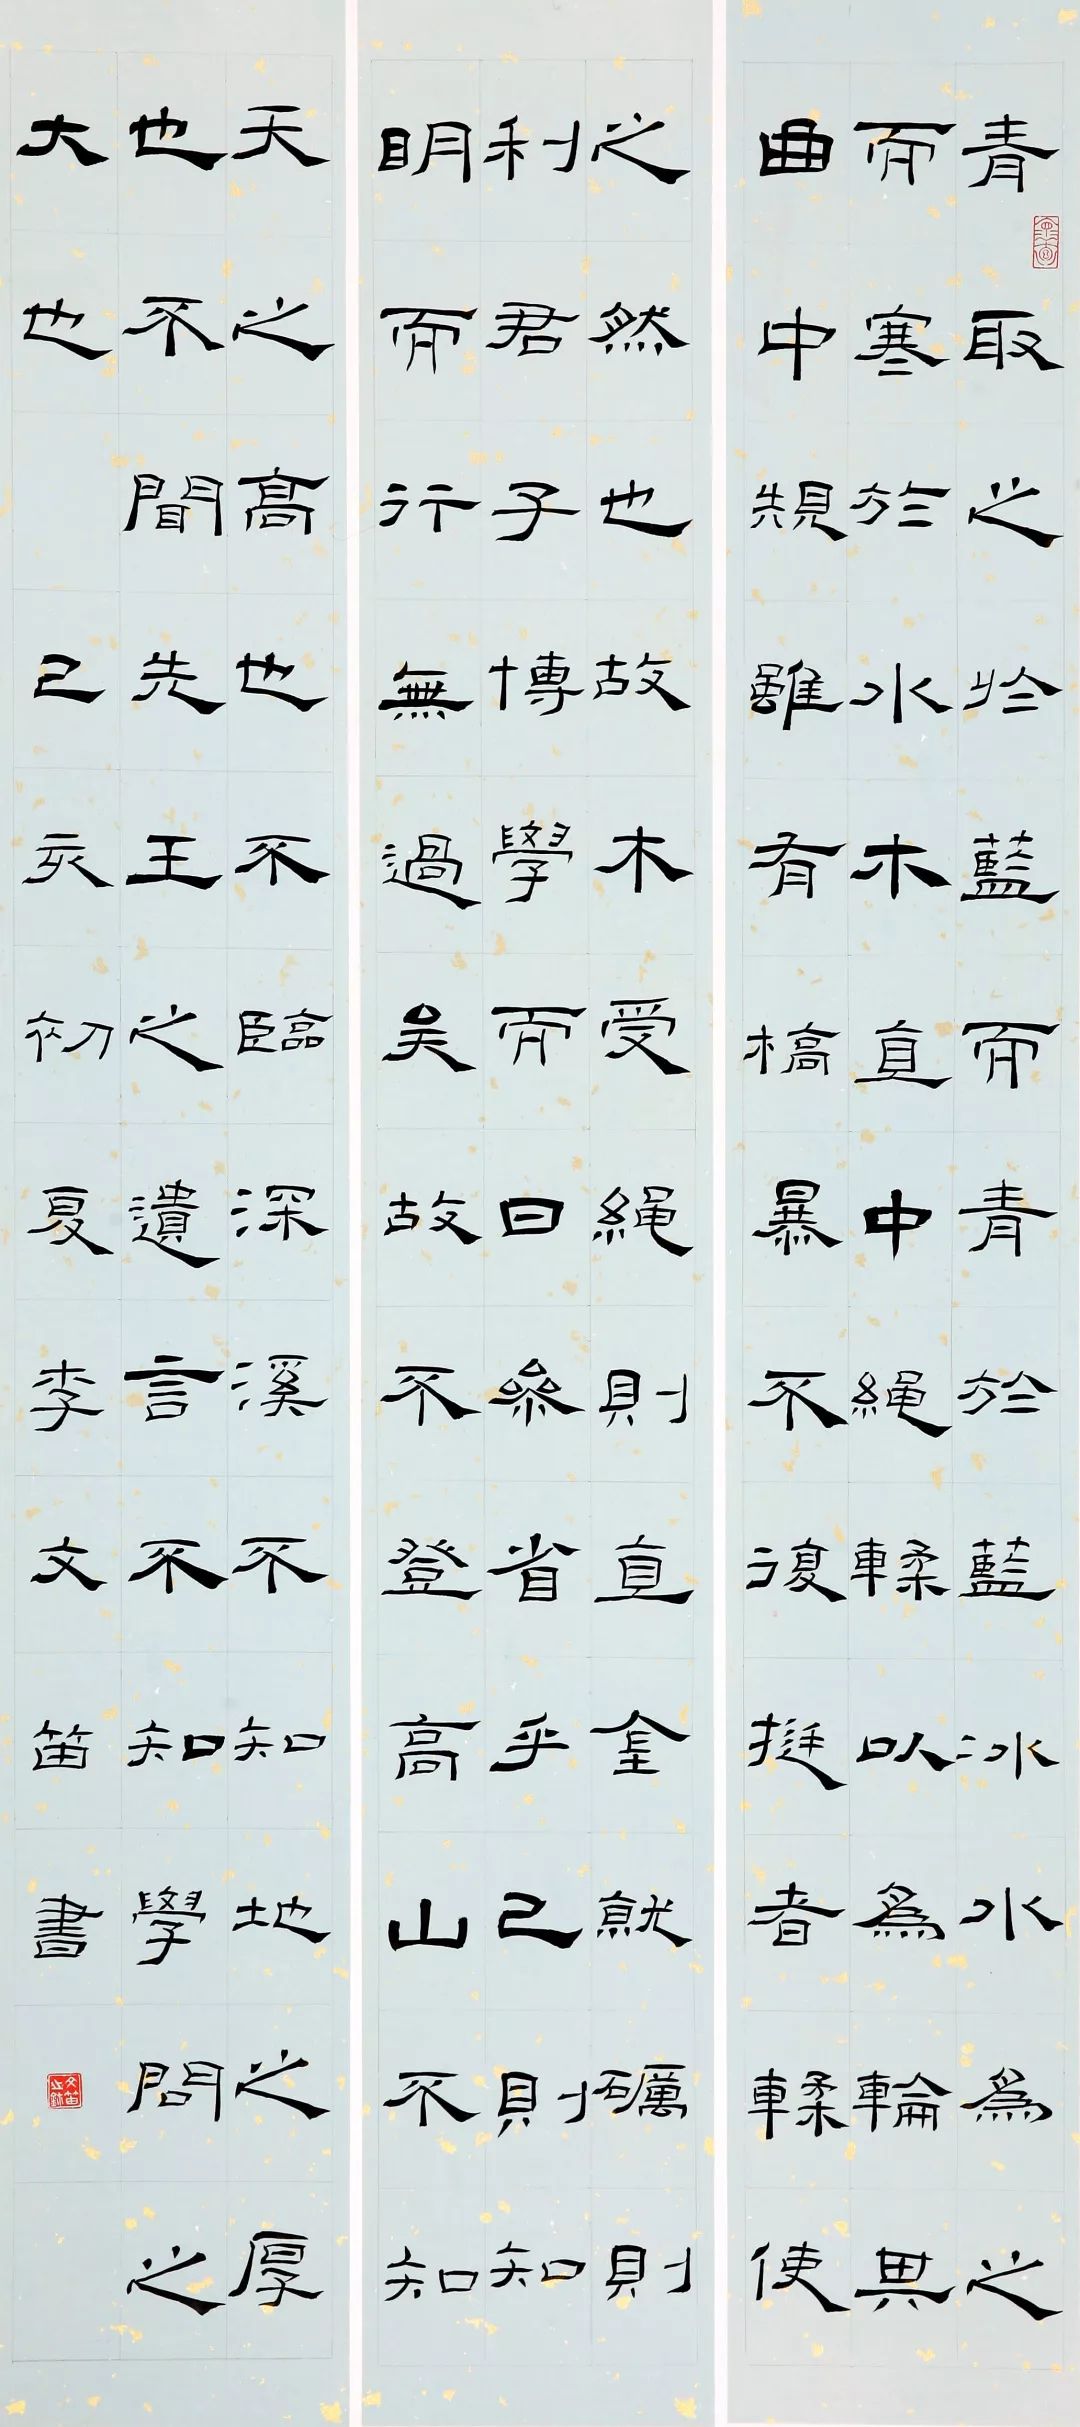 青取之於藍而青於藍冰水爲之
而寒於水木直中繩輮以爲輪其
曲中規雖有槁暴不復挺者輮使
之然也故木受繩則直金就礪則
利君子博學而日參省乎己則知
明而行無過矣故不登高山不知
天之高也不臨深溪不知地之厚
也不聞先王之遺言不知學問之
大也 己亥初夏李文笛書